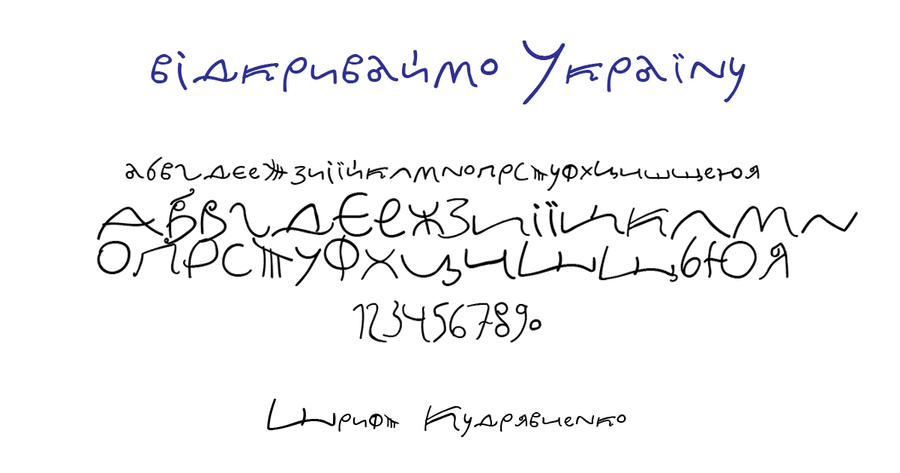 відкриваймо Україну
абвгдєежзиіїйклмнопрстуфхцчшщьюя
АБВГДЄЕЖЗИІЇЙКЛМН
ОПРСТУФХЦЧШЩЬЮЯ
1234567890
Шрифт Кудрявченко